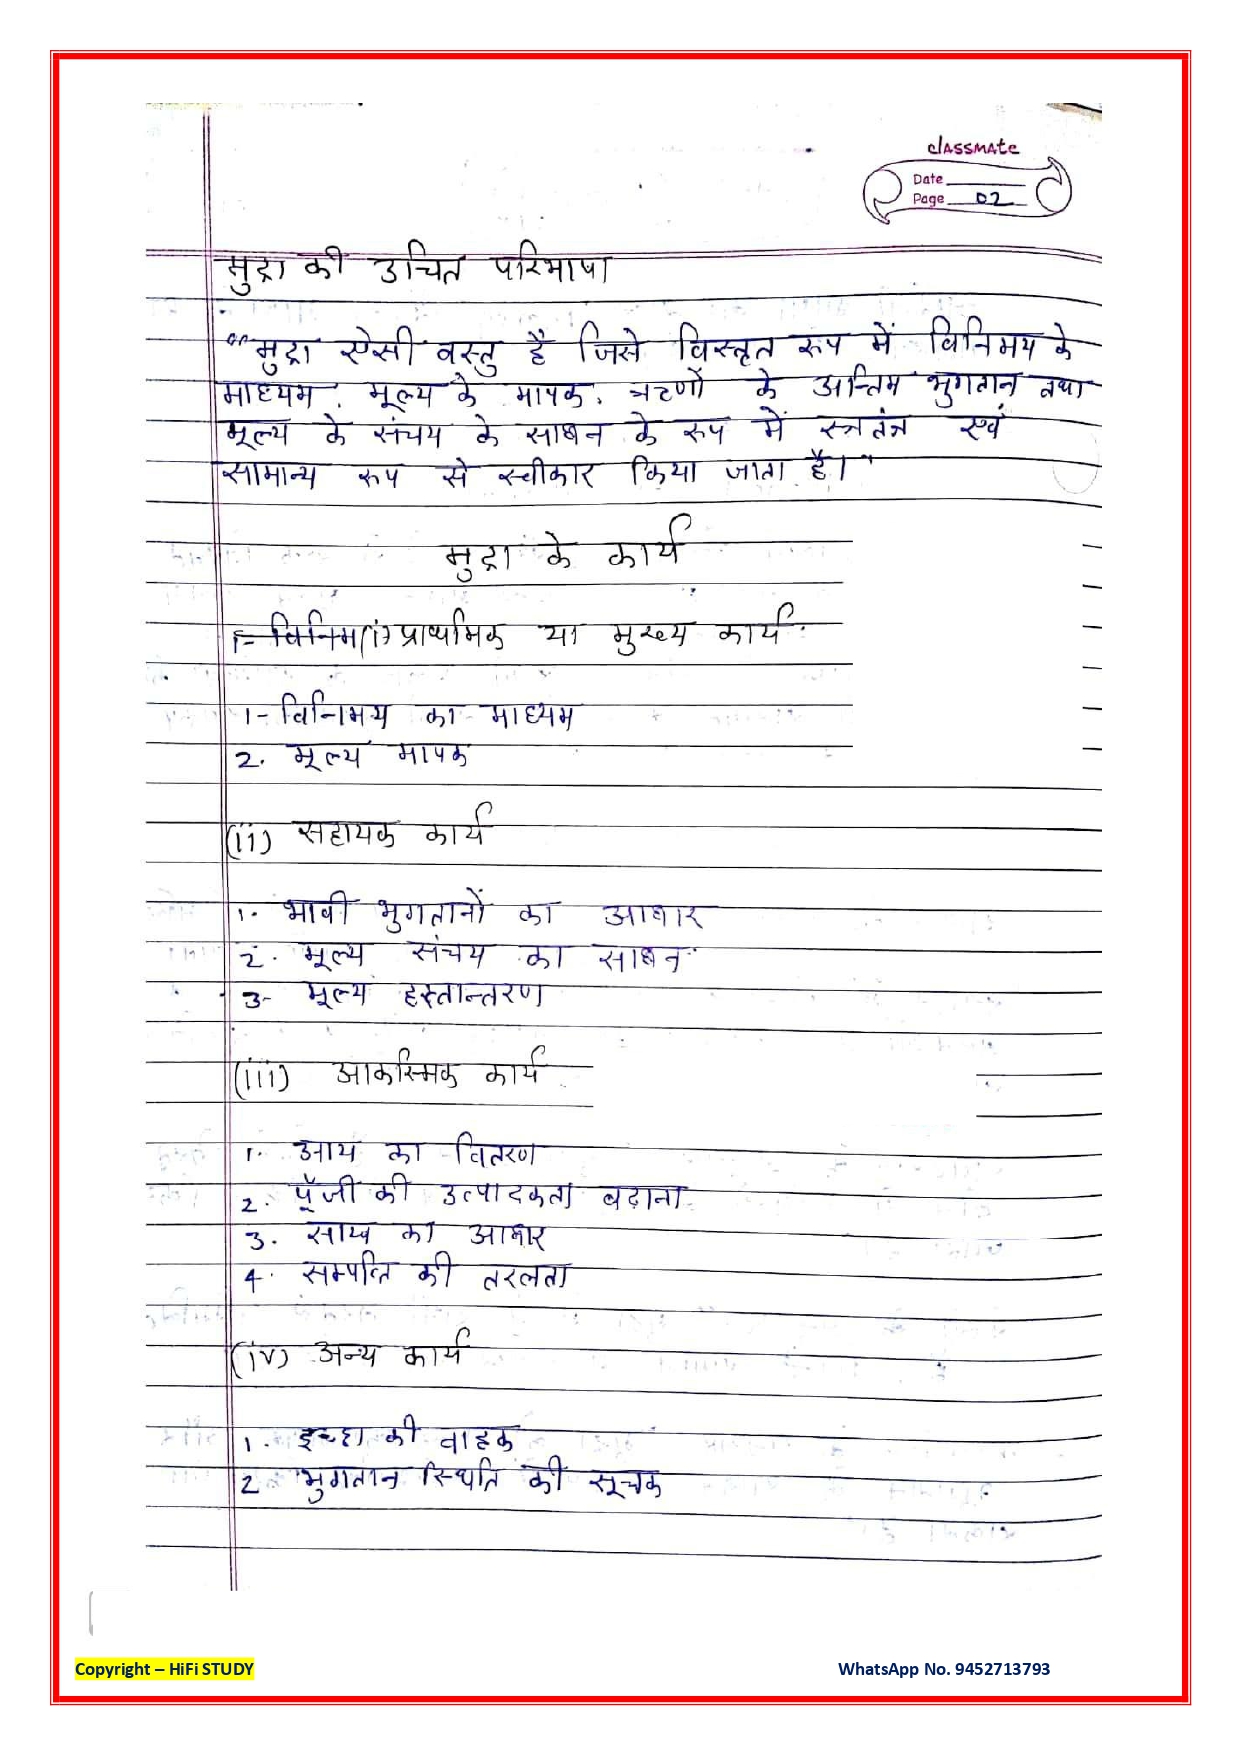 classmate
Date
Page 02
मुद्रा की उचित परिभाषा
"मुद्रा ऐसी वस्तु है जिसे विस्तृत रूप में विनिमय के
माध्यम, मूल्य के मापक, ऋणों के अन्तिम भुगतान तथा
मूल्य के संचय के साधन के रूप में स्वतंत्र एवं
सामान्य रूप से स्वीकार किया जाता है।"
मुद्रा के कार्य
1- विनिम (i) प्राथमिक या मुख्य कार्य
1- विनिमय का माध्यम
2. मूल्य मापक
(ii) सहायक कार्य
1. भावी भुगतानों का आधार
2. मूल्य संचय का साधन
3- मूल्य हस्तान्तरण
(iii) आकस्मिक कार्य
1. आय का वितरण
2. पूँजी की उत्पादकता बढ़ाना
3. साख का आधार
4. सम्पत्ति की तरलता
(iv) अन्य कार्य
1. इच्छा की वाहक
2 भुगतान स्थिति की सूचक
Copyright – HiFi STUDY
WhatsApp No. 9452713793